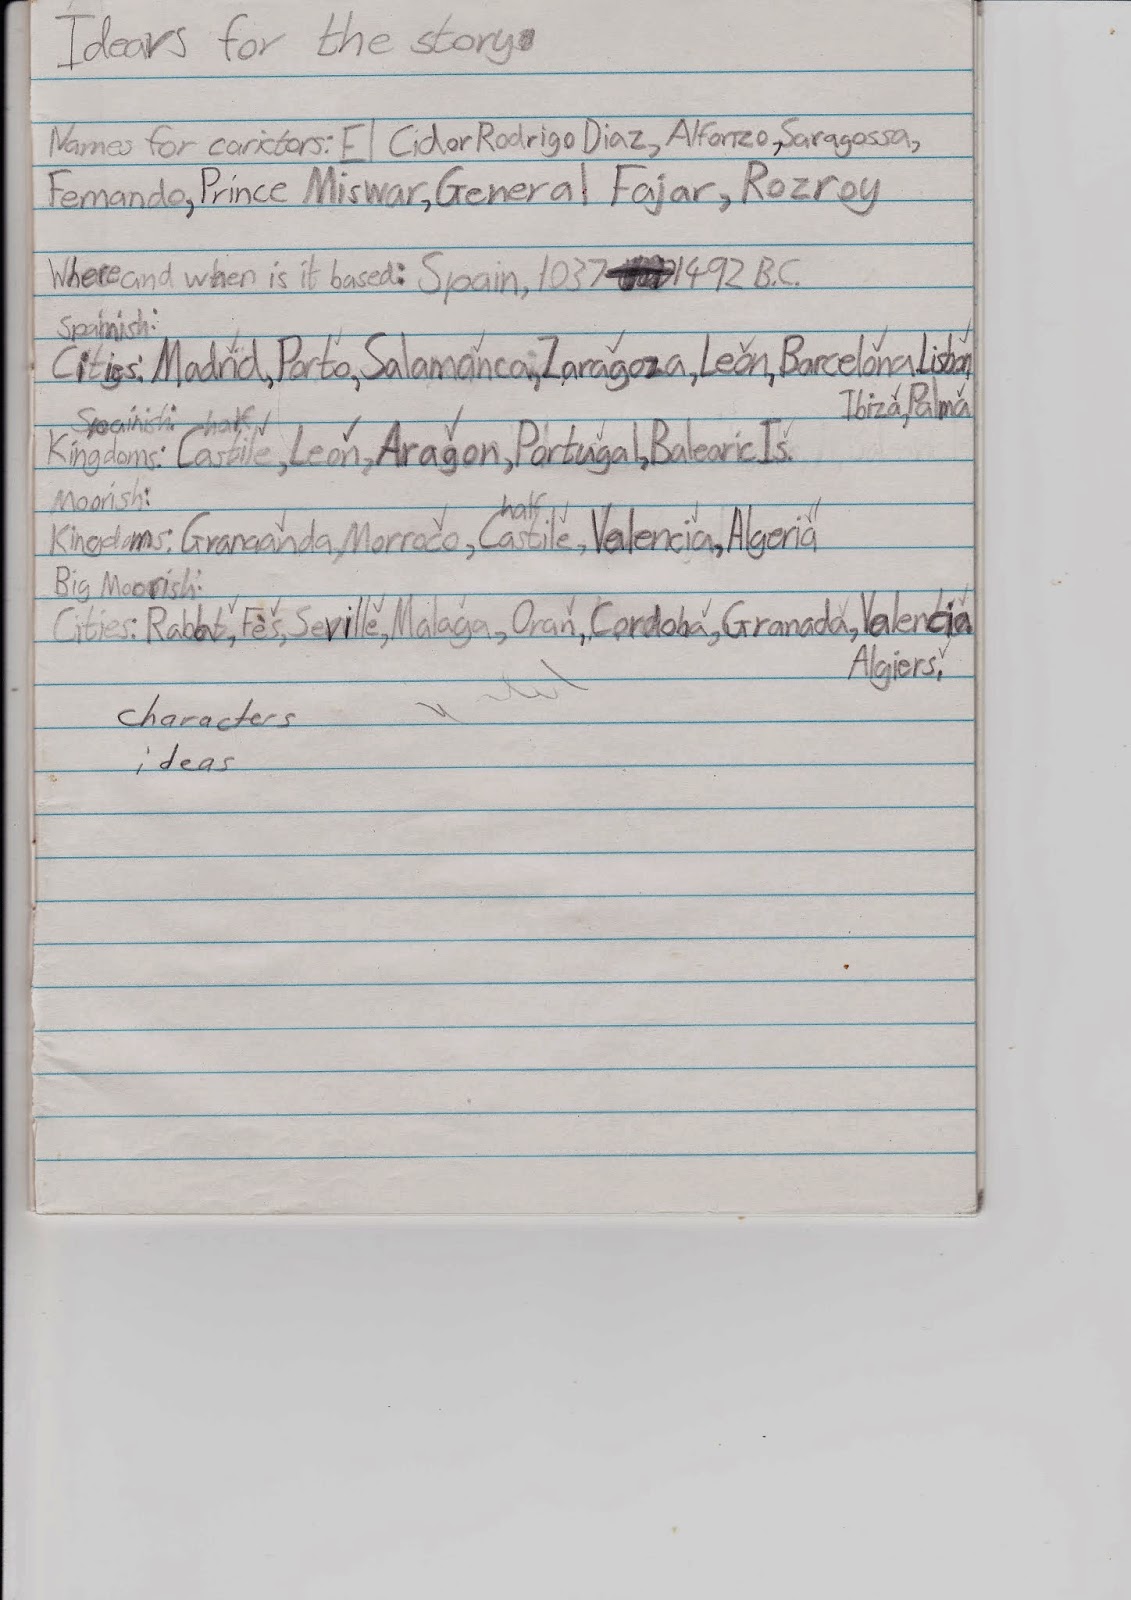 Idears for the story.
Names for carictors: El Cid or Rodrigo Diaz, Alfonzo, Saragossa,
Fernando, Prince Miswar, General Fajar, Rozroy
Where and when is it based: Spain, 1037 1492 B.C.
Spainish:
Cities: Madrid, Porto, Salamanca, Zaragoza, León, Barcelona, Lisbon,
Ibiza, Palma
Spainish: half
Kingdoms: Castile, León, Aragon, Portugal, Balearic Is.
Moorish: half
Kingdoms: Grananda, Morroco, Castile, Valencia, Algeria
Big Moorish:
Cities: Rabbat, Fès, Seville, Malaga, Oran, Cordoba, Granada, Valencia
Algiers.
characters
ideas